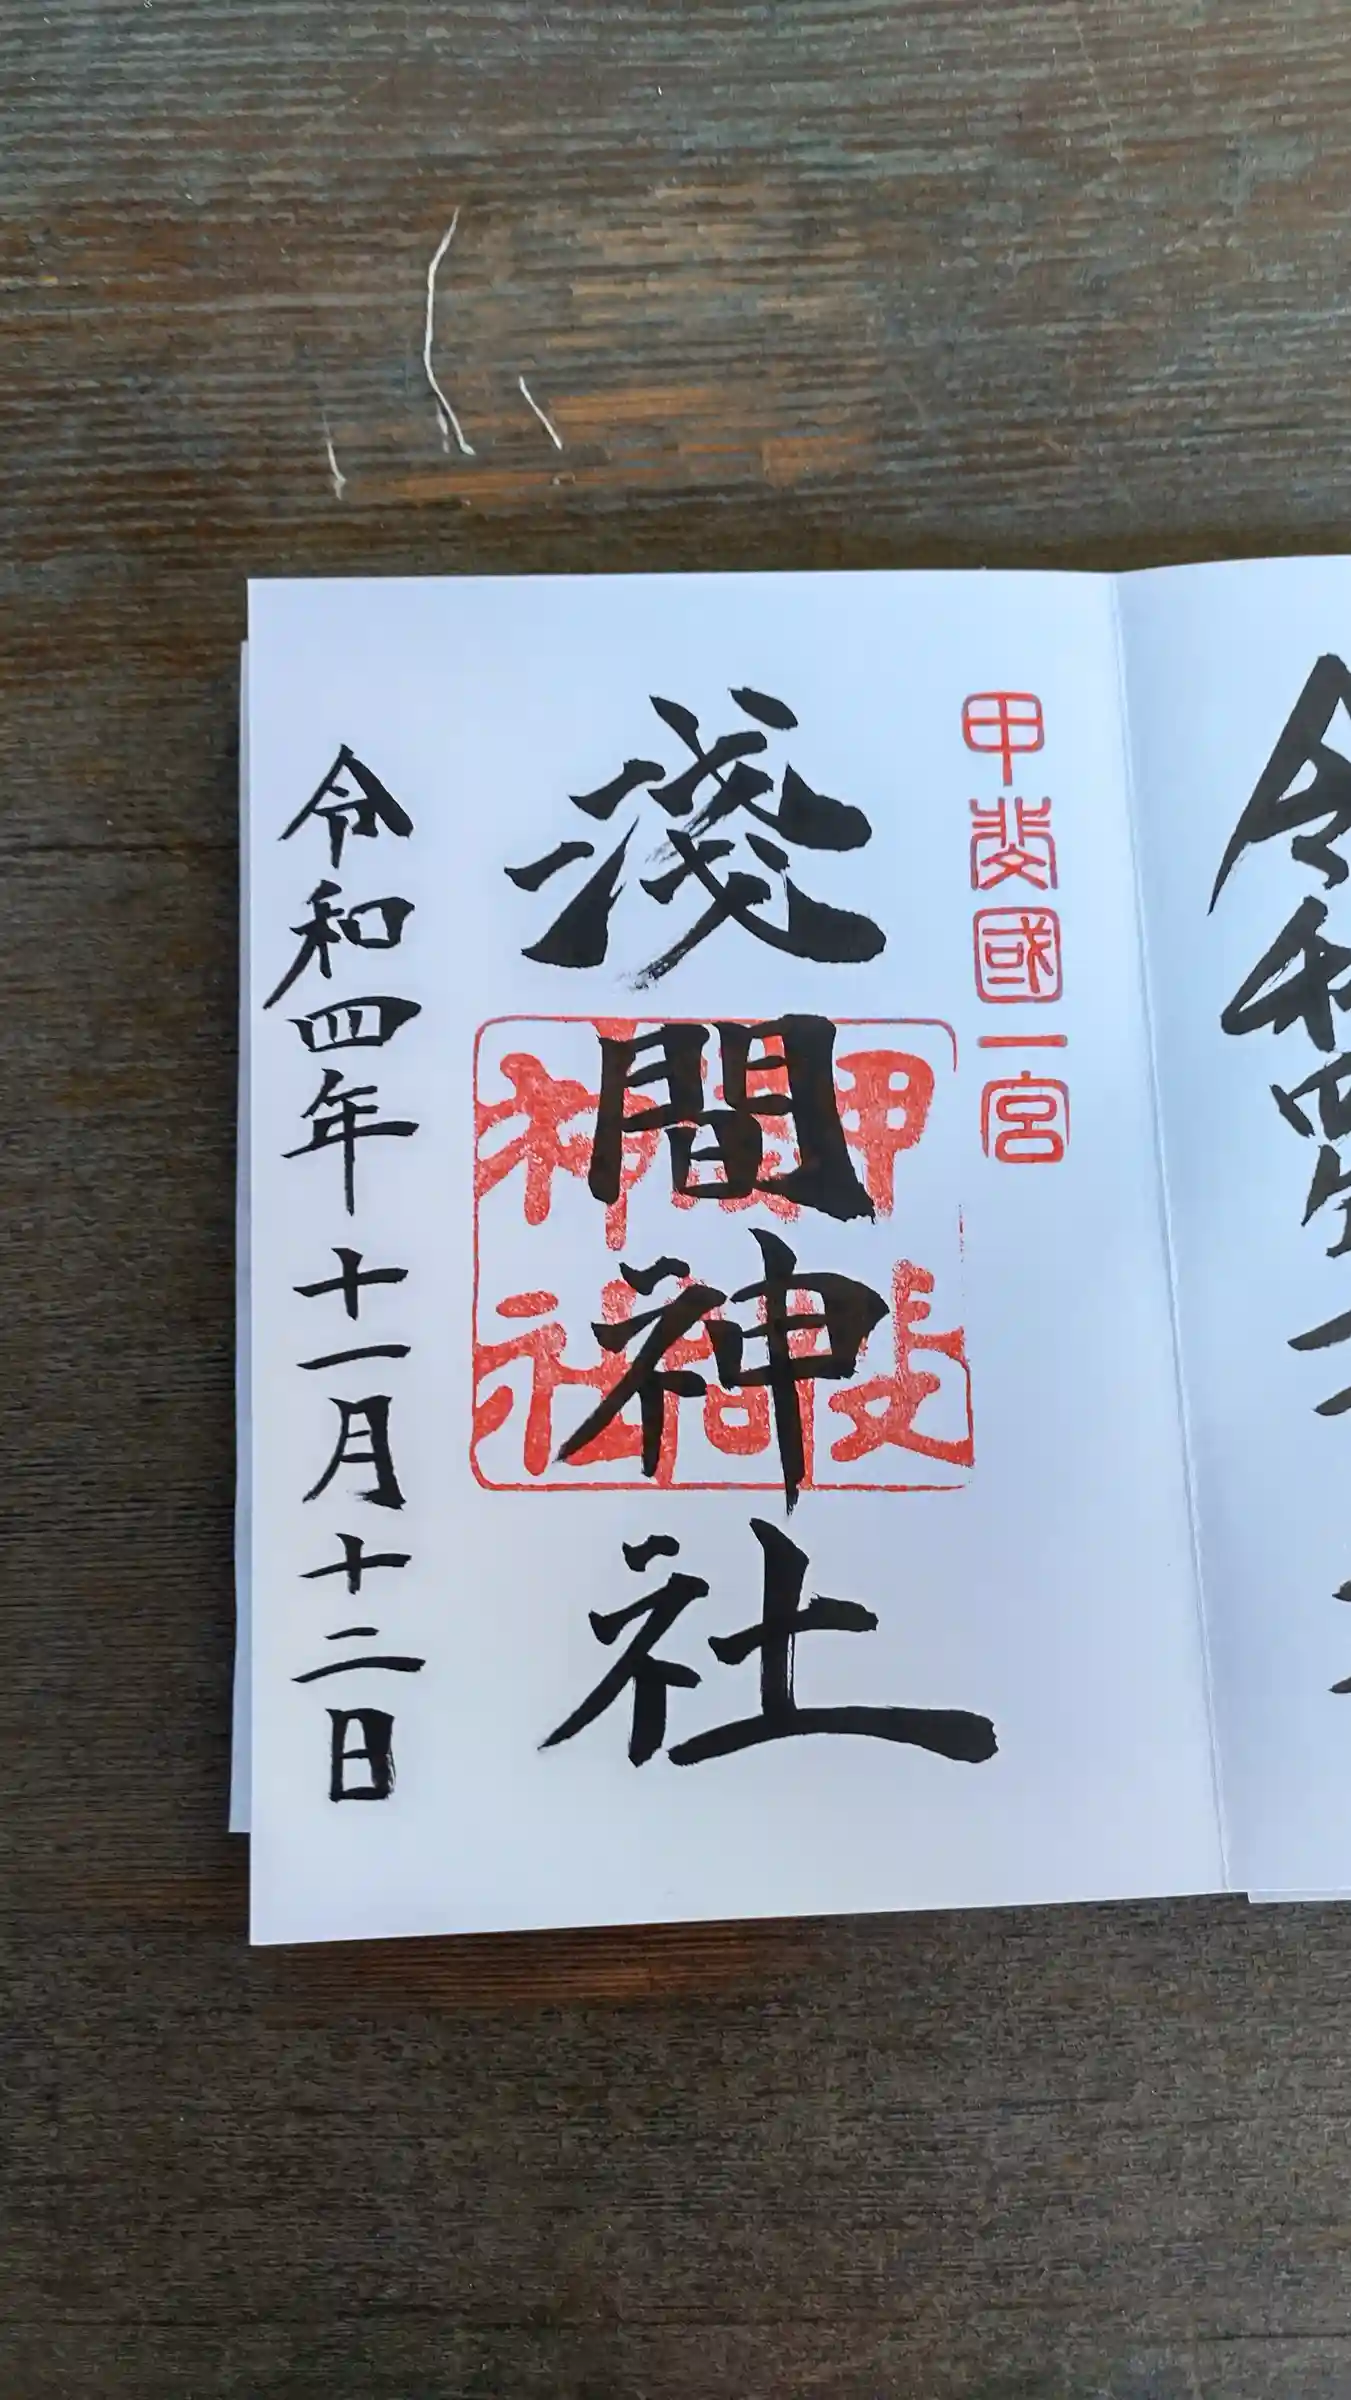 令和四
甲斐國一宮
淺間神社
甲斐
淺間
神社
令和四年十一月十二日